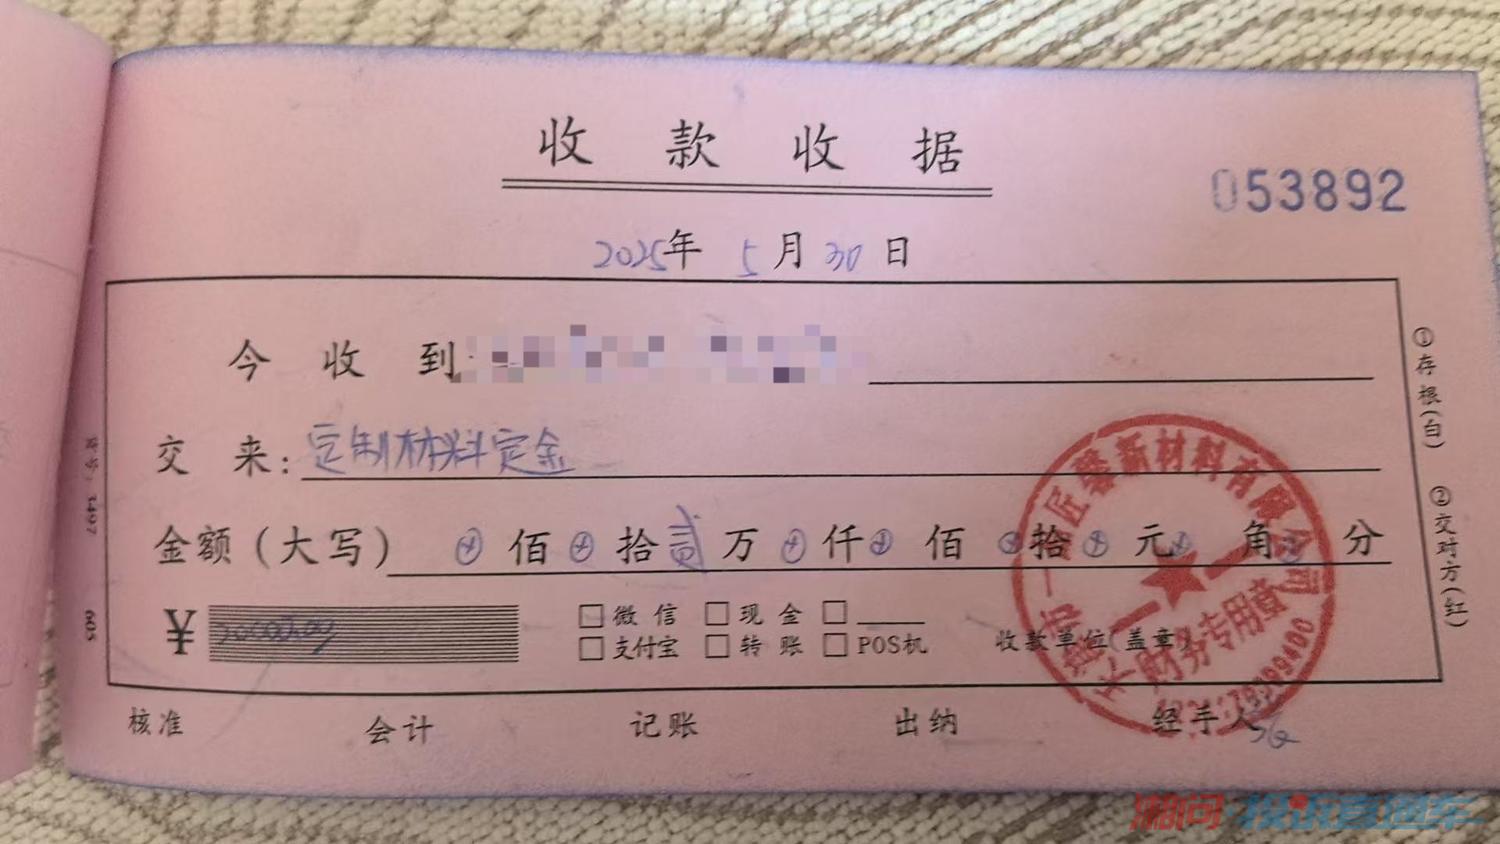 收款收据
053892
2025年 5月 30日
今收到:
交来: 定制材料定金
金额(大写) ⊗佰⊗拾贰万⊗仟⊗佰⊗拾⊗元⊗角⊗分
¥
□微信 □现金 □
□支付宝 □转账 □POS机
收款单位(盖章)
匠馨新材料有限公司
财务专用章
核准 会计 记账 出纳 经手人
①存根(白)
②交对方(红)
湘问·投诉直通车